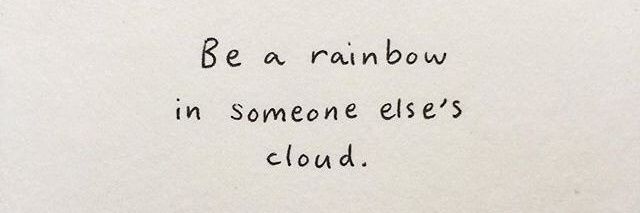 Be a rainbow
in someone else's
cloud.